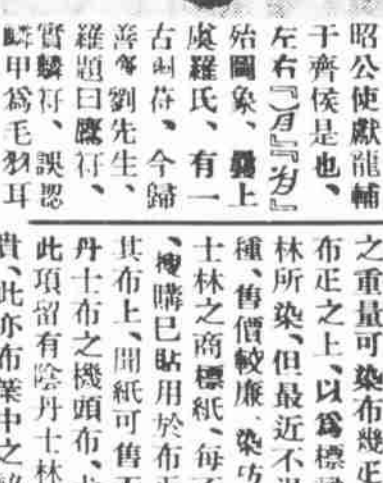 昭公使獻龍輔
于齊侯是也、
左右
殆圖象、曩上
虞羅氏、有一
古銅符、今歸
善齋劉先生、
羅題曰鷹符、
實麟符、誤認
鱗甲爲毛羽耳
之重量可染布幾疋
布疋之上、以爲標
林所染、但最近不
種、售價較廉、染坊
士林之商標紙、每
、搜購已貼用於布疋
其布上、開紙可售
丹士布之機頭布、
此項留有陰丹士林
貴、此亦布業中之